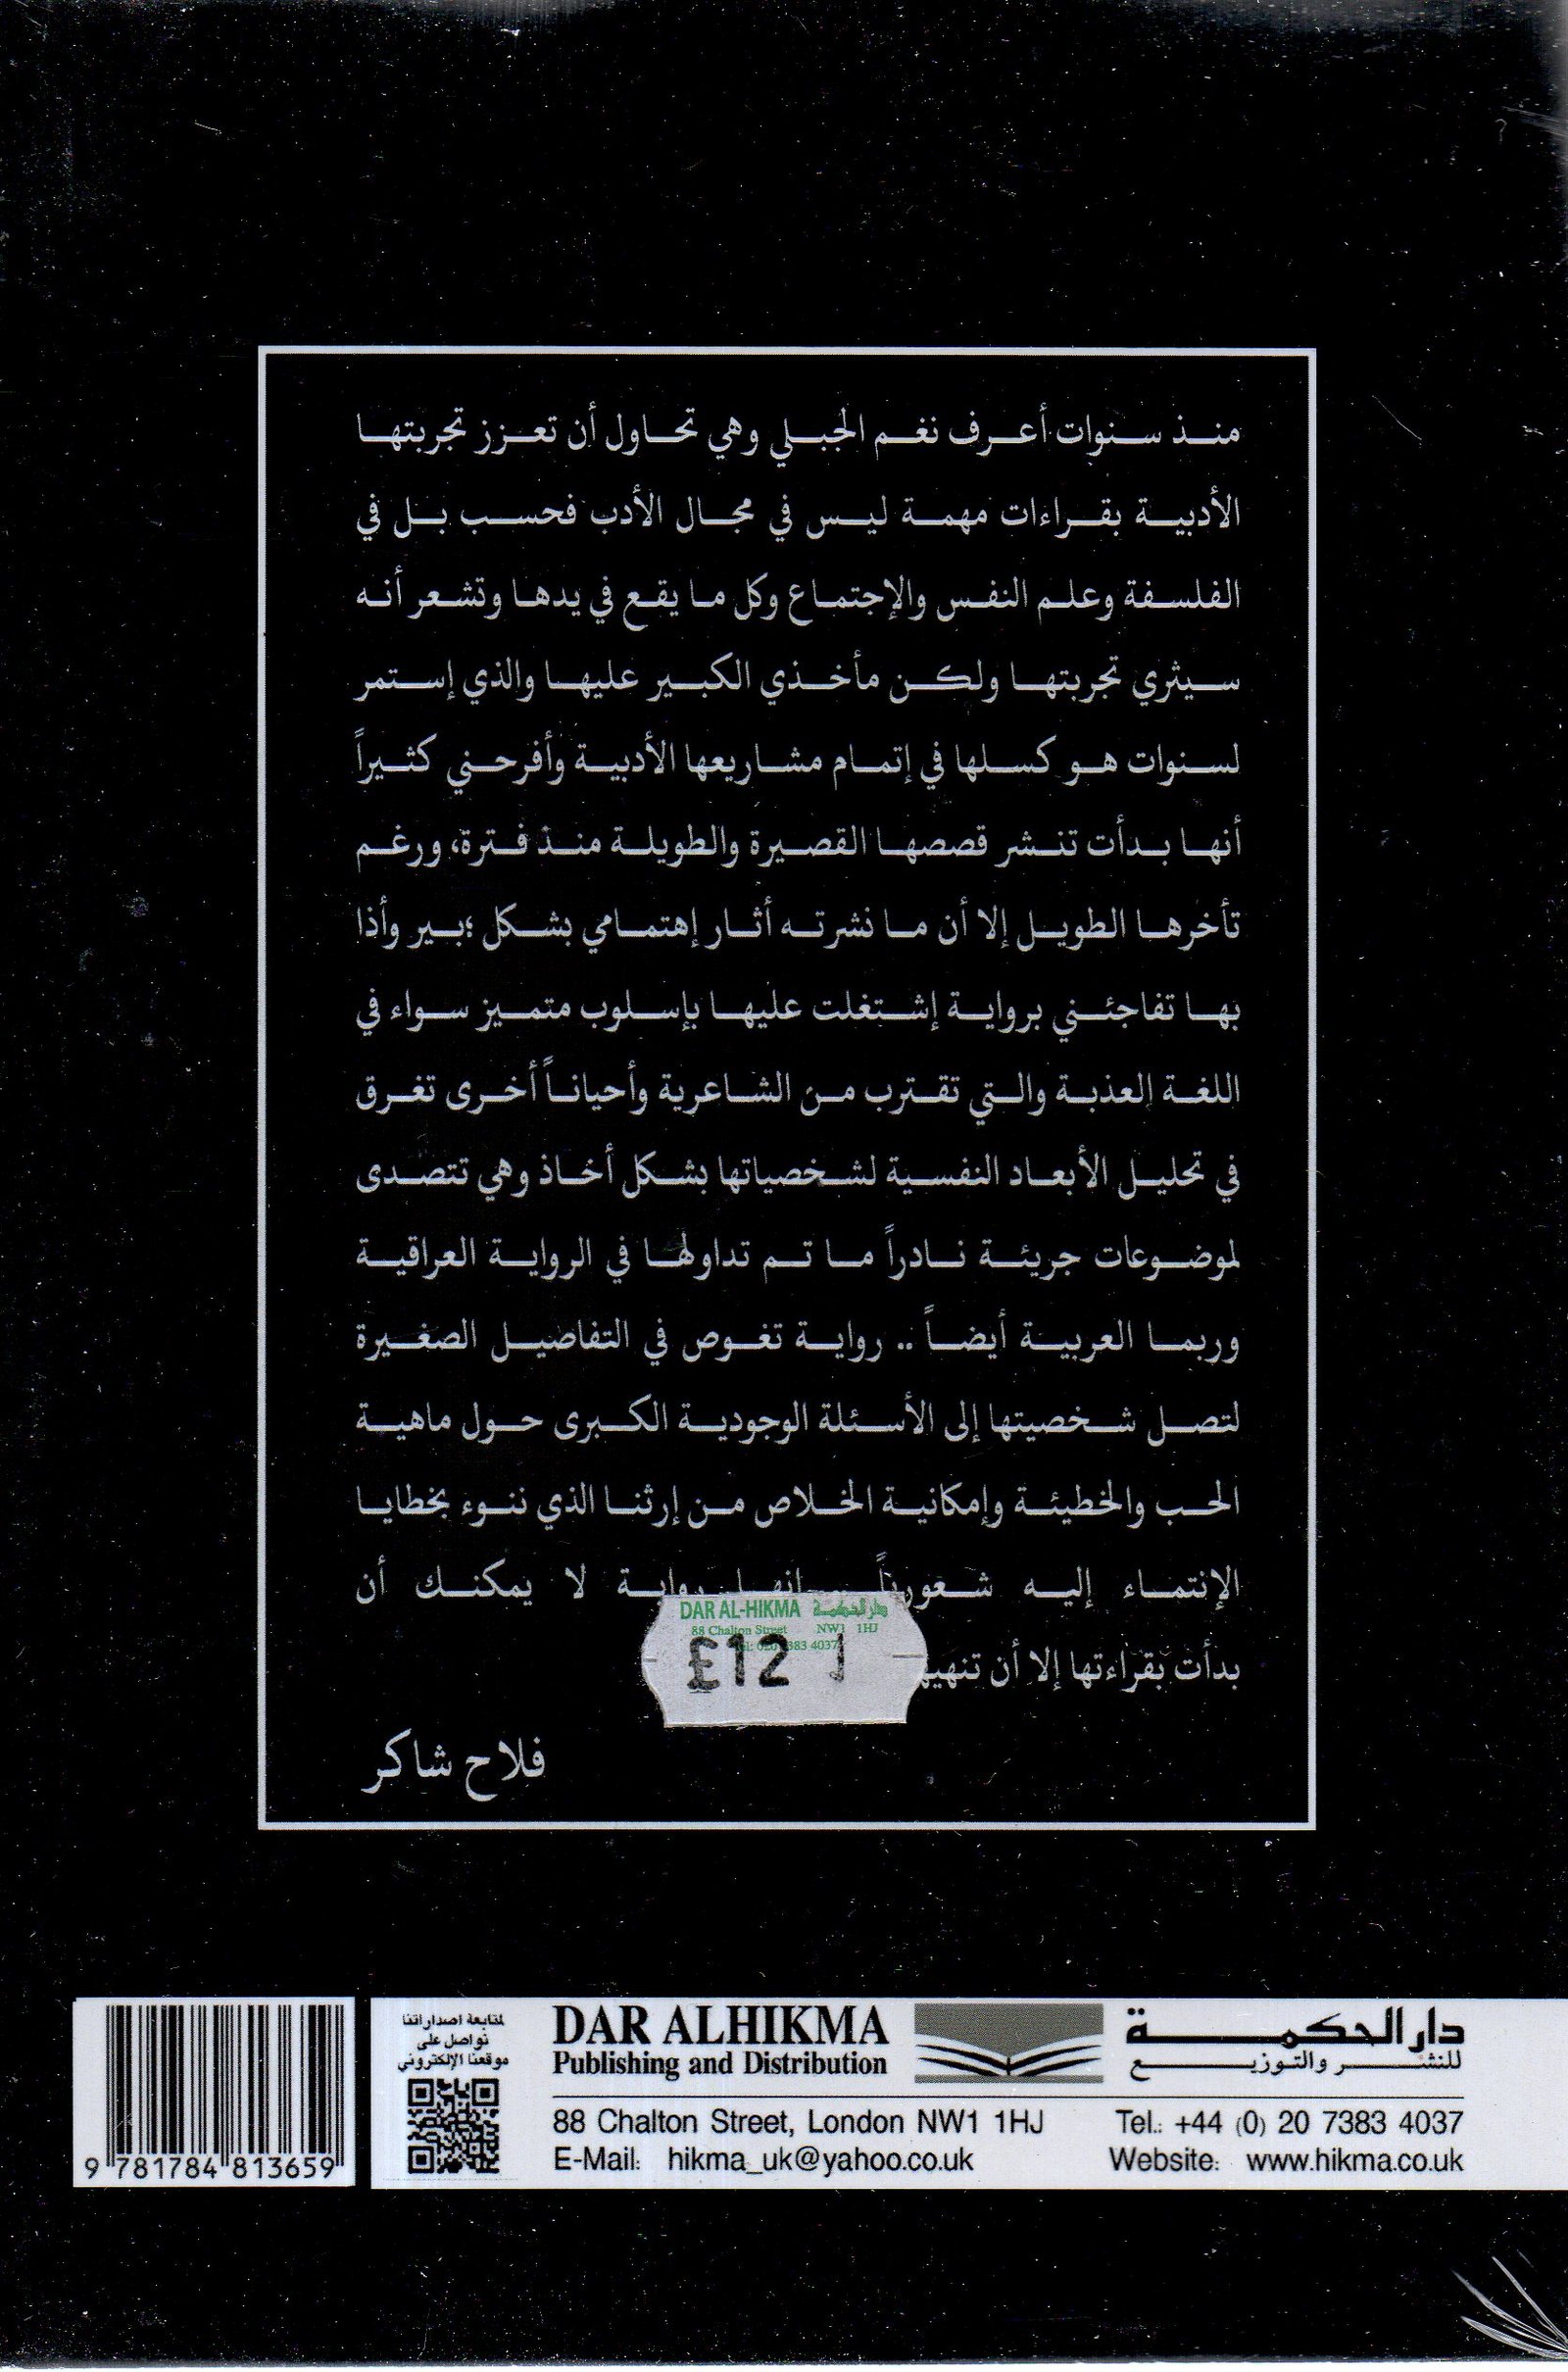 منذ سنوات أعرف نغم الجبلي وهي تحاول أن تعزز تجربتها
الأدبية بقراءات مهمة ليس في مجال الأدب فحسب بل في
الفلسفة وعلم النفس والإجتماع وكل ما يقع في يدها وتشعر أنه
سيثري تجربتها ولكن مأخذي الكبير عليها والذي إستمر
لسنوات هو كسلها في إتمام مشاريعها الأدبية وأفرحني كثيراً
أنها بدأت تنشر قصصها القصيرة والطويلة منذ فترة، ورغم
تأخرها الطويل إلا أن ما نشرته أثار إهتمامي بشكل ؛بير وأذا
بها تفاجئني برواية إشتغلت عليها بإسلوب متميز سواء في
اللغة العذبة والتي تقترب من الشاعرية وأحياناً أخرى تغرق
في تحليل الأبعاد النفسية لشخصياتها بشكل أخاذ وهي تتصدى
لموضوعات جريئة نادراً ما تم تداولها في الرواية العراقية
وربما العربية أيضاً .. رواية تغوص في التفاصيل الصغيرة
لتصل شخصيتها إلى الأسئلة الوجودية الكبرى حول ماهية
الحب والخطيئة وإمكانية الخلاص من إرثنا الذي ننوء بخطايا
الإنتماء إليه شعورياً انها رواية لا يمكنك أن
بدأت بقراءتها إلا أن تنهيها
DAR AL-HIKMA دار الحكمة
88 Chalton Street NW1 1HJ
Tel: 020 7383 4037
£12
فلاح شاكر
9 781784 813659
لمتابعة اصداراتنا
تواصل على
موقعنا الإلكتروني
DAR ALHIKMA
Publishing and Distribution
دار الحكمة
للنشر والتوزيع
88 Chalton Street, London NW1 1HJ
Tel.: +44 (0) 20 7383 4037
E-Mail: hikma_uk@yahoo.co.uk
Website: www.hikma.co.uk